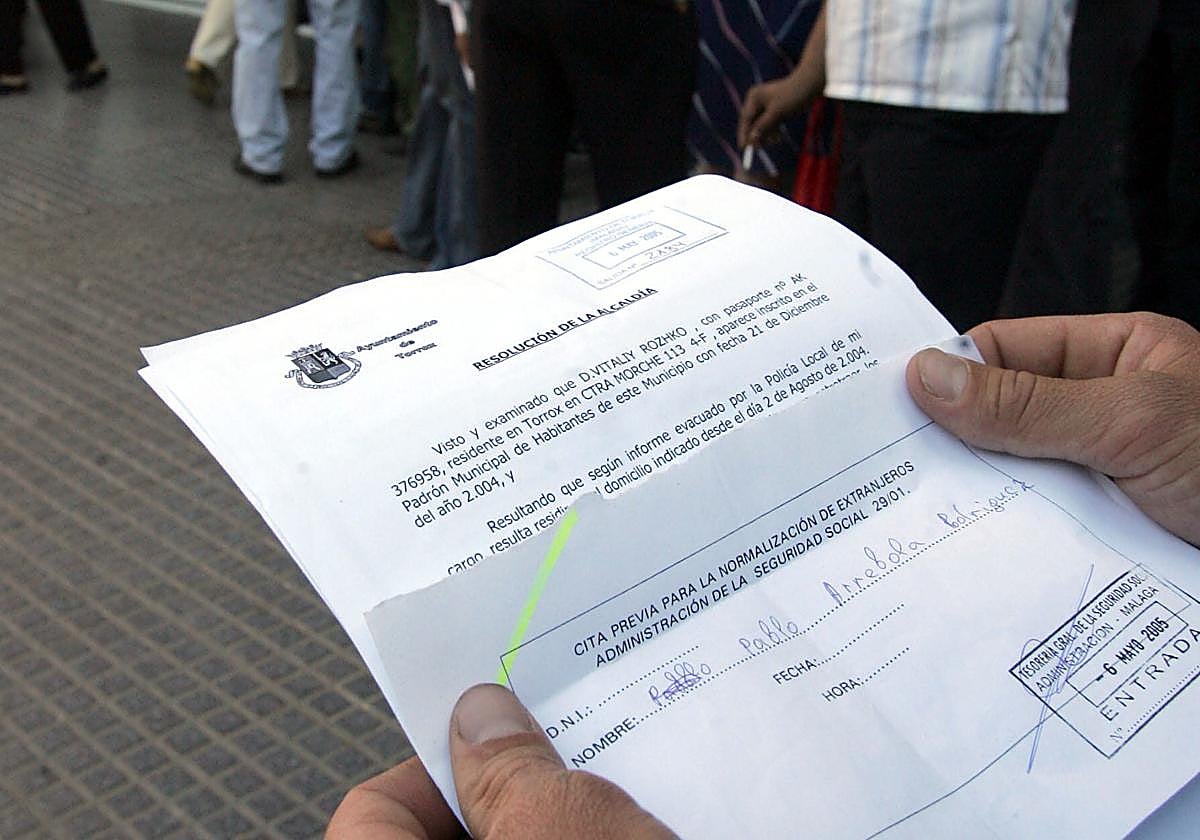 AYUNTAMIENTO DE
6 MAY 2005
SALIDA Nº 2834
Ayuntamiento
de
Torrox
RESOLUCIÓN DE LA ALCALDÍA
Visto y examinado que D.VITALIY ROZHKO , con pasaporte nº AK
376958, residente en Torrox en CTRA MORCHE 113 4-F , aparece inscrito en el
Padrón Municipal de Habitantes de este Municipio con fecha 21 de Diciembre
del año 2.004, y
Resultando que según informe evacuado por la Policía Local de mi
cargo, resulta domicilio indicado desde el día 2 de Agosto de 2.004,
CITA PREVIA PARA LA NORMALIZACIÓN DE EXTRANJEROS
ADMINISTRACIÓN DE LA SEGURIDAD SOCIAL 29/01.
D.N.I.:
NOMBRE: Pablo Arrebola Rodriguez
FECHA:
HORA:
TESORERIA GRAL DE LA SEGURIDAD SOC
ADMINISTRACIÓN - MALAGA
-6 MAYO 2005
ENTRADA
Nº